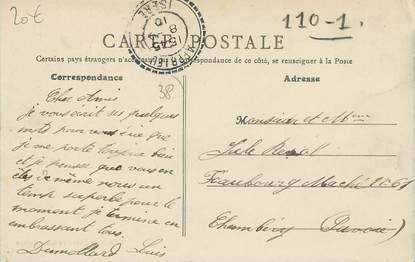 20€
110-1.
CARTE POSTALE
Certains pays étrangers n'acceptant pas de correspondance de ce côté, se renseigner à la Poste
ISÈRE
Correspondance
Adresse
38
Cher Amis
je vous ecrit ses quelques
mots pour vous dire que
je me porte toujours bien
et je pense que vous en
êtes de même nous un
temp superbe pour le
moment je termine en
embrassant tous.
Dumollard Louis
Monsieur et Mme
Jule
Faubourg Maché N° 61
Chambéry (Savoie)